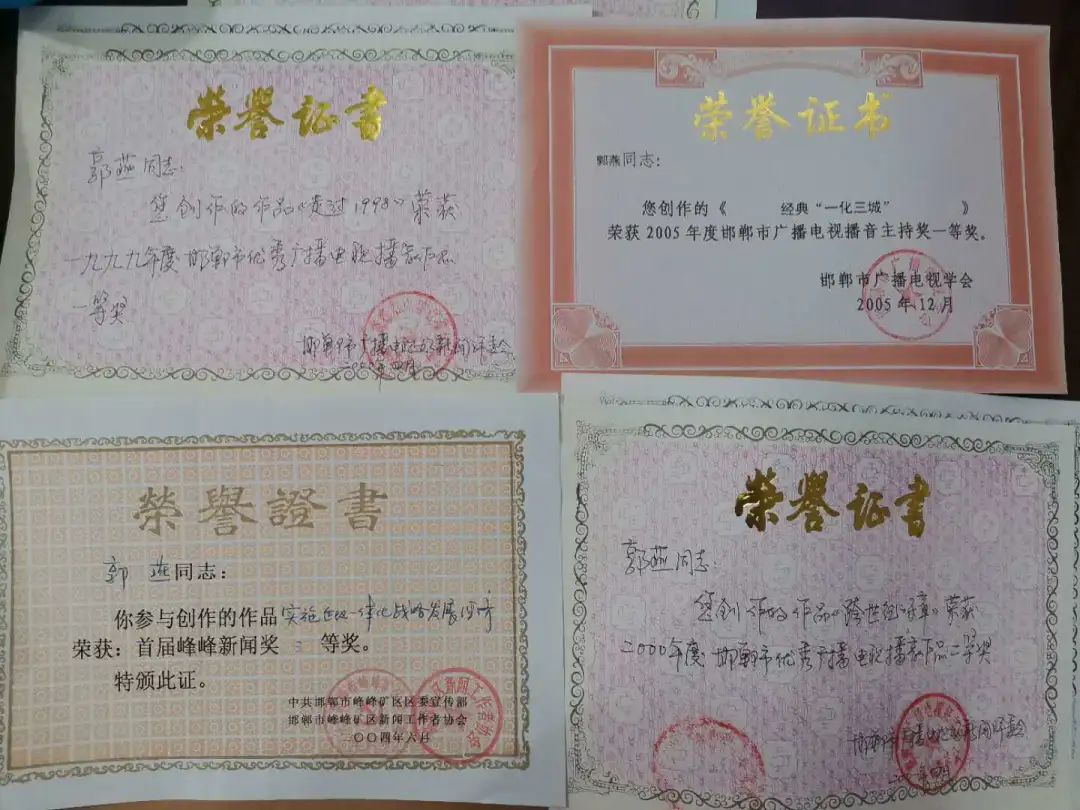 榮譽证書
郭燕同志:
您创作的作品《走过1998》荣获
一九九九年度邯郸市优秀广播电视播音作品
一等奖
邯郸市广播电视新闻评委会
荣誉证书
郭燕同志:
您创作的《 经典“一化三城” 》
荣获 2005 年度邯郸市广播电视播音主持奖一等奖。
邯郸市广播电视学会
2005 年 12 月
榮譽證書
郭 燕同志:
你参与创作的作品实施区域一体化战略发展经济
荣获:首届峰峰新闻奖 等奖。
特颁此证。
中共邯郸市峰峰矿区区委宣传部
邯郸市峰峰矿区新闻工作者协会
二〇〇四年六月
榮譽证書
郭燕同志:
您创作的作品《跨世纪 章》荣获
二000年度邯郸市优秀广播电视播音作品二等奖
邯郸市广播电视新闻评委会